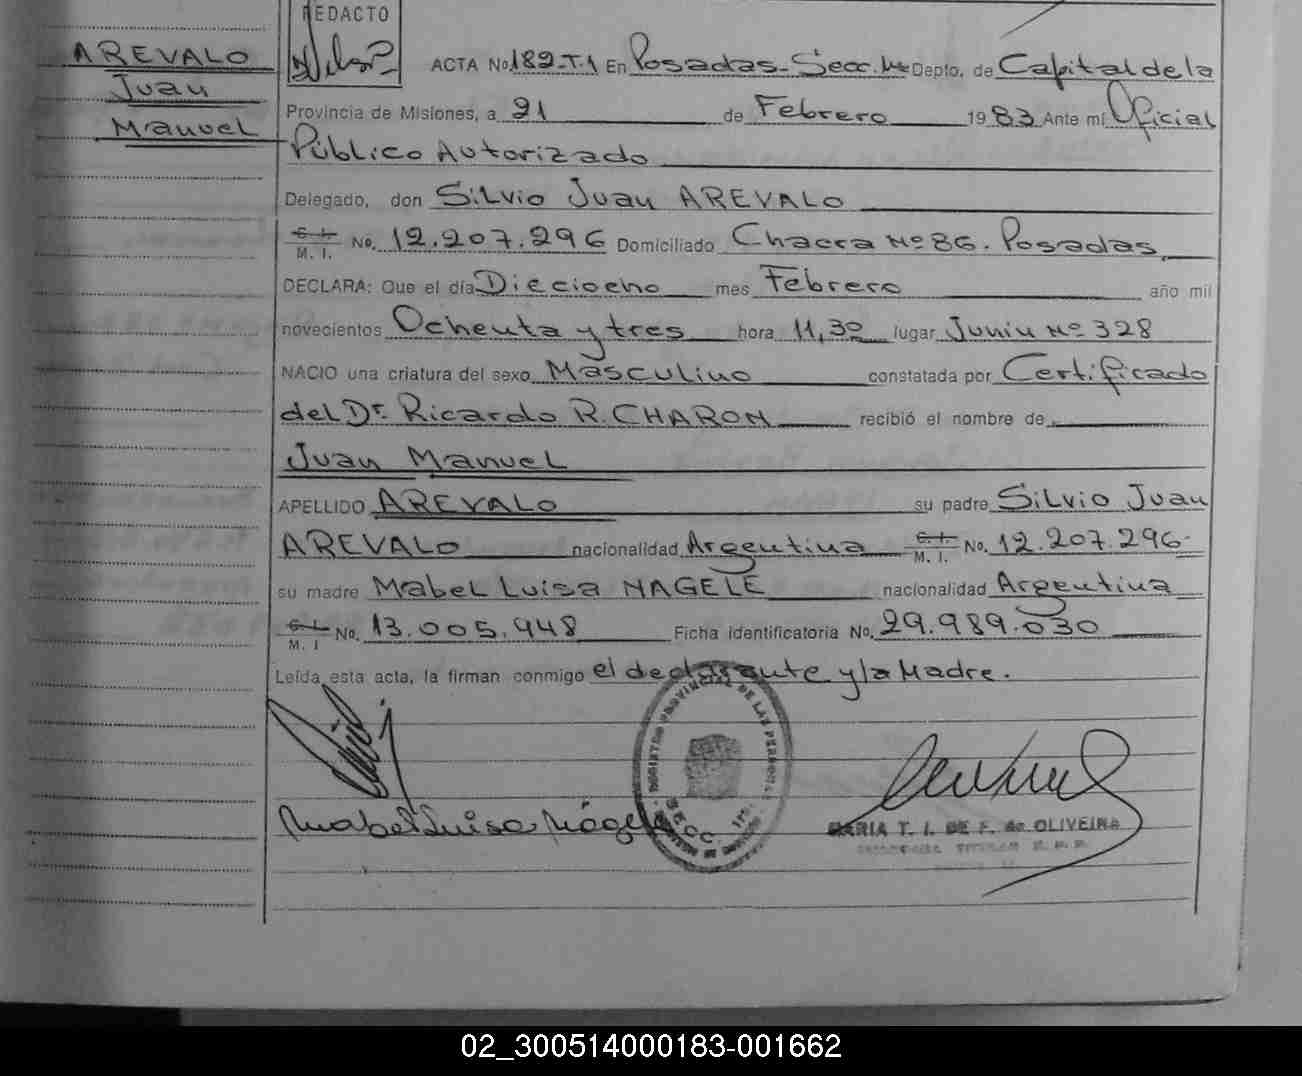 REDACTO
AREVALO
Juan
Manuel
ACTA No 189-T.1 En Posadas-Secc. Depto. de Capital de la
Provincia de Misiones, a 21 de Febrero 1983 Ante mí Oficial
Público Autorizado
Delegado, don Silvio Juan AREVALO
C. I.
M. I. No. 12.207.296 Domiciliado Chacra Nº 86. Posadas
DECLARA: Que el día Dieciocho mes Febrero año mil
novecientos Ochenta y tres hora 11,30 lugar Junín Nº 328
NACIO una criatura del sexo Masculino constatada por Certificado
del Dr. Ricardo R. CHARON recibió el nombre de
Juan Manuel
APELLIDO AREVALO su padre Silvio Juan
AREVALO nacionalidad Argentina C. I. M. I. No. 12.207.296
su madre Mabel Luisa NAGELE nacionalidad Argentina
C. I.
M. I No. 13.005.948 Ficha identificatoria No. 29.989.030
Leída esta acta, la firman conmigo el declarante y la Madre.
REGISTRO PROVINCIAL DE LAS PERSONAS
SECC.
Mabel Luisa Nágele
MARIA T. I. DE F. de OLIVEIRA
02_300514000183-001662